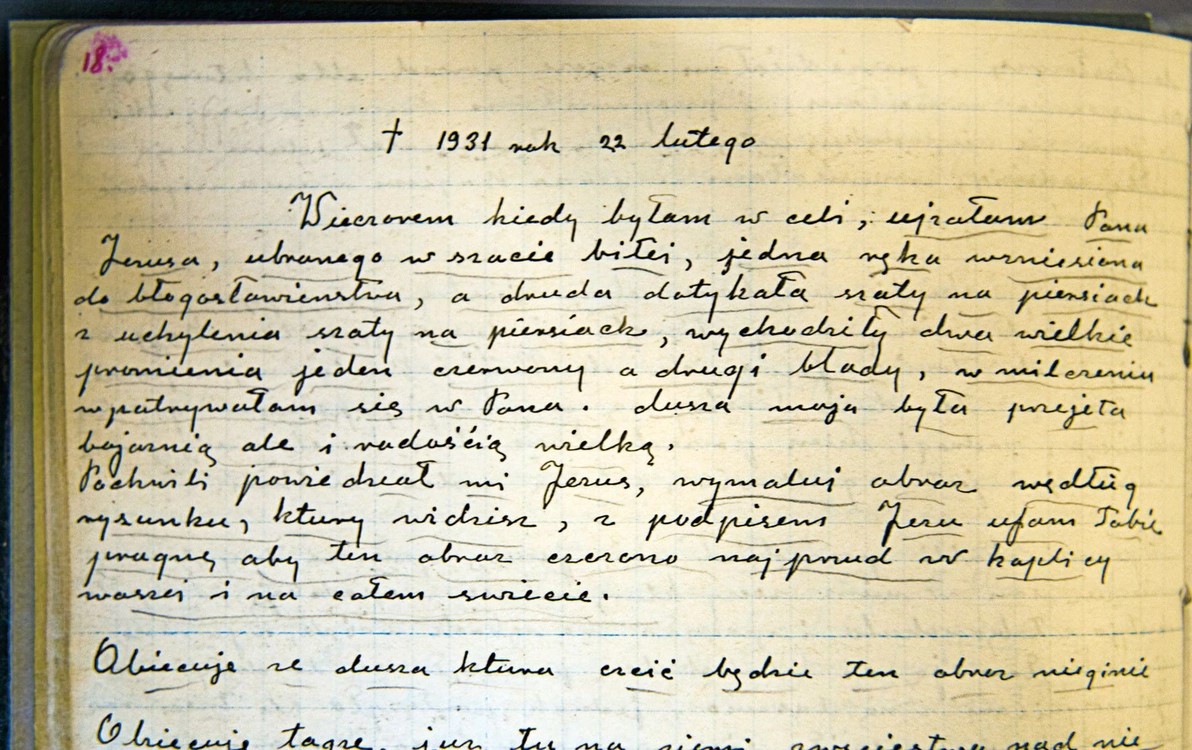 18.
† 1931 rok 22 lutego
Wieczorem kiedy byłam w celi, ujrałam Pana
Jezusa, ubranego w szacie biłei, jedna ręka wzniesiona
do błogosławienstwa, a druda dotykała szaty na piersiach
z uchylenia szaty na piersiach, wychodziły dwa wielkie
promienia jeden czerwony a drugi blady, w milczeniu
wpatrywałam się w Pana. dusza moja była przejeta
bojaznią ale i radośćią wielką.
Pochwili powiedzeał mi Jezus, wymaluj obraz według
rysunku, ktury widzisz, z podpisem Jezu ufam Tobie
pragnę aby ten obraz czczono najprzud w kaplicy
waszei i na całem swiecie.
Obiecuje ze dusza ktura czcić będzie ten obraz nieginie
Obiecuje tagze, juz tu na ziemi zwyciestwa nad nie